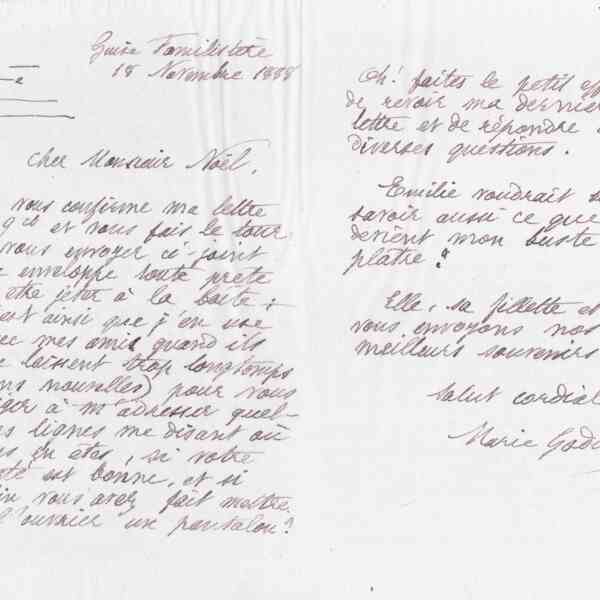 Guise Familistère
18 Novembre 1888
Cher Monsieur Noël,
vous confirme ma lettre
9 ct et vous fais le tour
vous envoyer ci-joint
enveloppe toute prête
être jetée à la boîte;
ainsi que j'en use
mes amis quand ils
laissent trop longtemps
nouvelles) pour vous
à m'adresser quel-
lignes me disant où
en êtes, si votre
est bonne, et si
vous avez fait mettre
l'ouvrier un pantalon?
Oh! faites le petit eff
de revoir ma dernière
lettre et de répondre
diverses questions.
Emilie voudrait
savoir aussi ce que
devient mon buste
plâtre?
Elle, sa fillette et
vous envoyons nos
meilleurs souvenirs
Salut cordial
Marie God